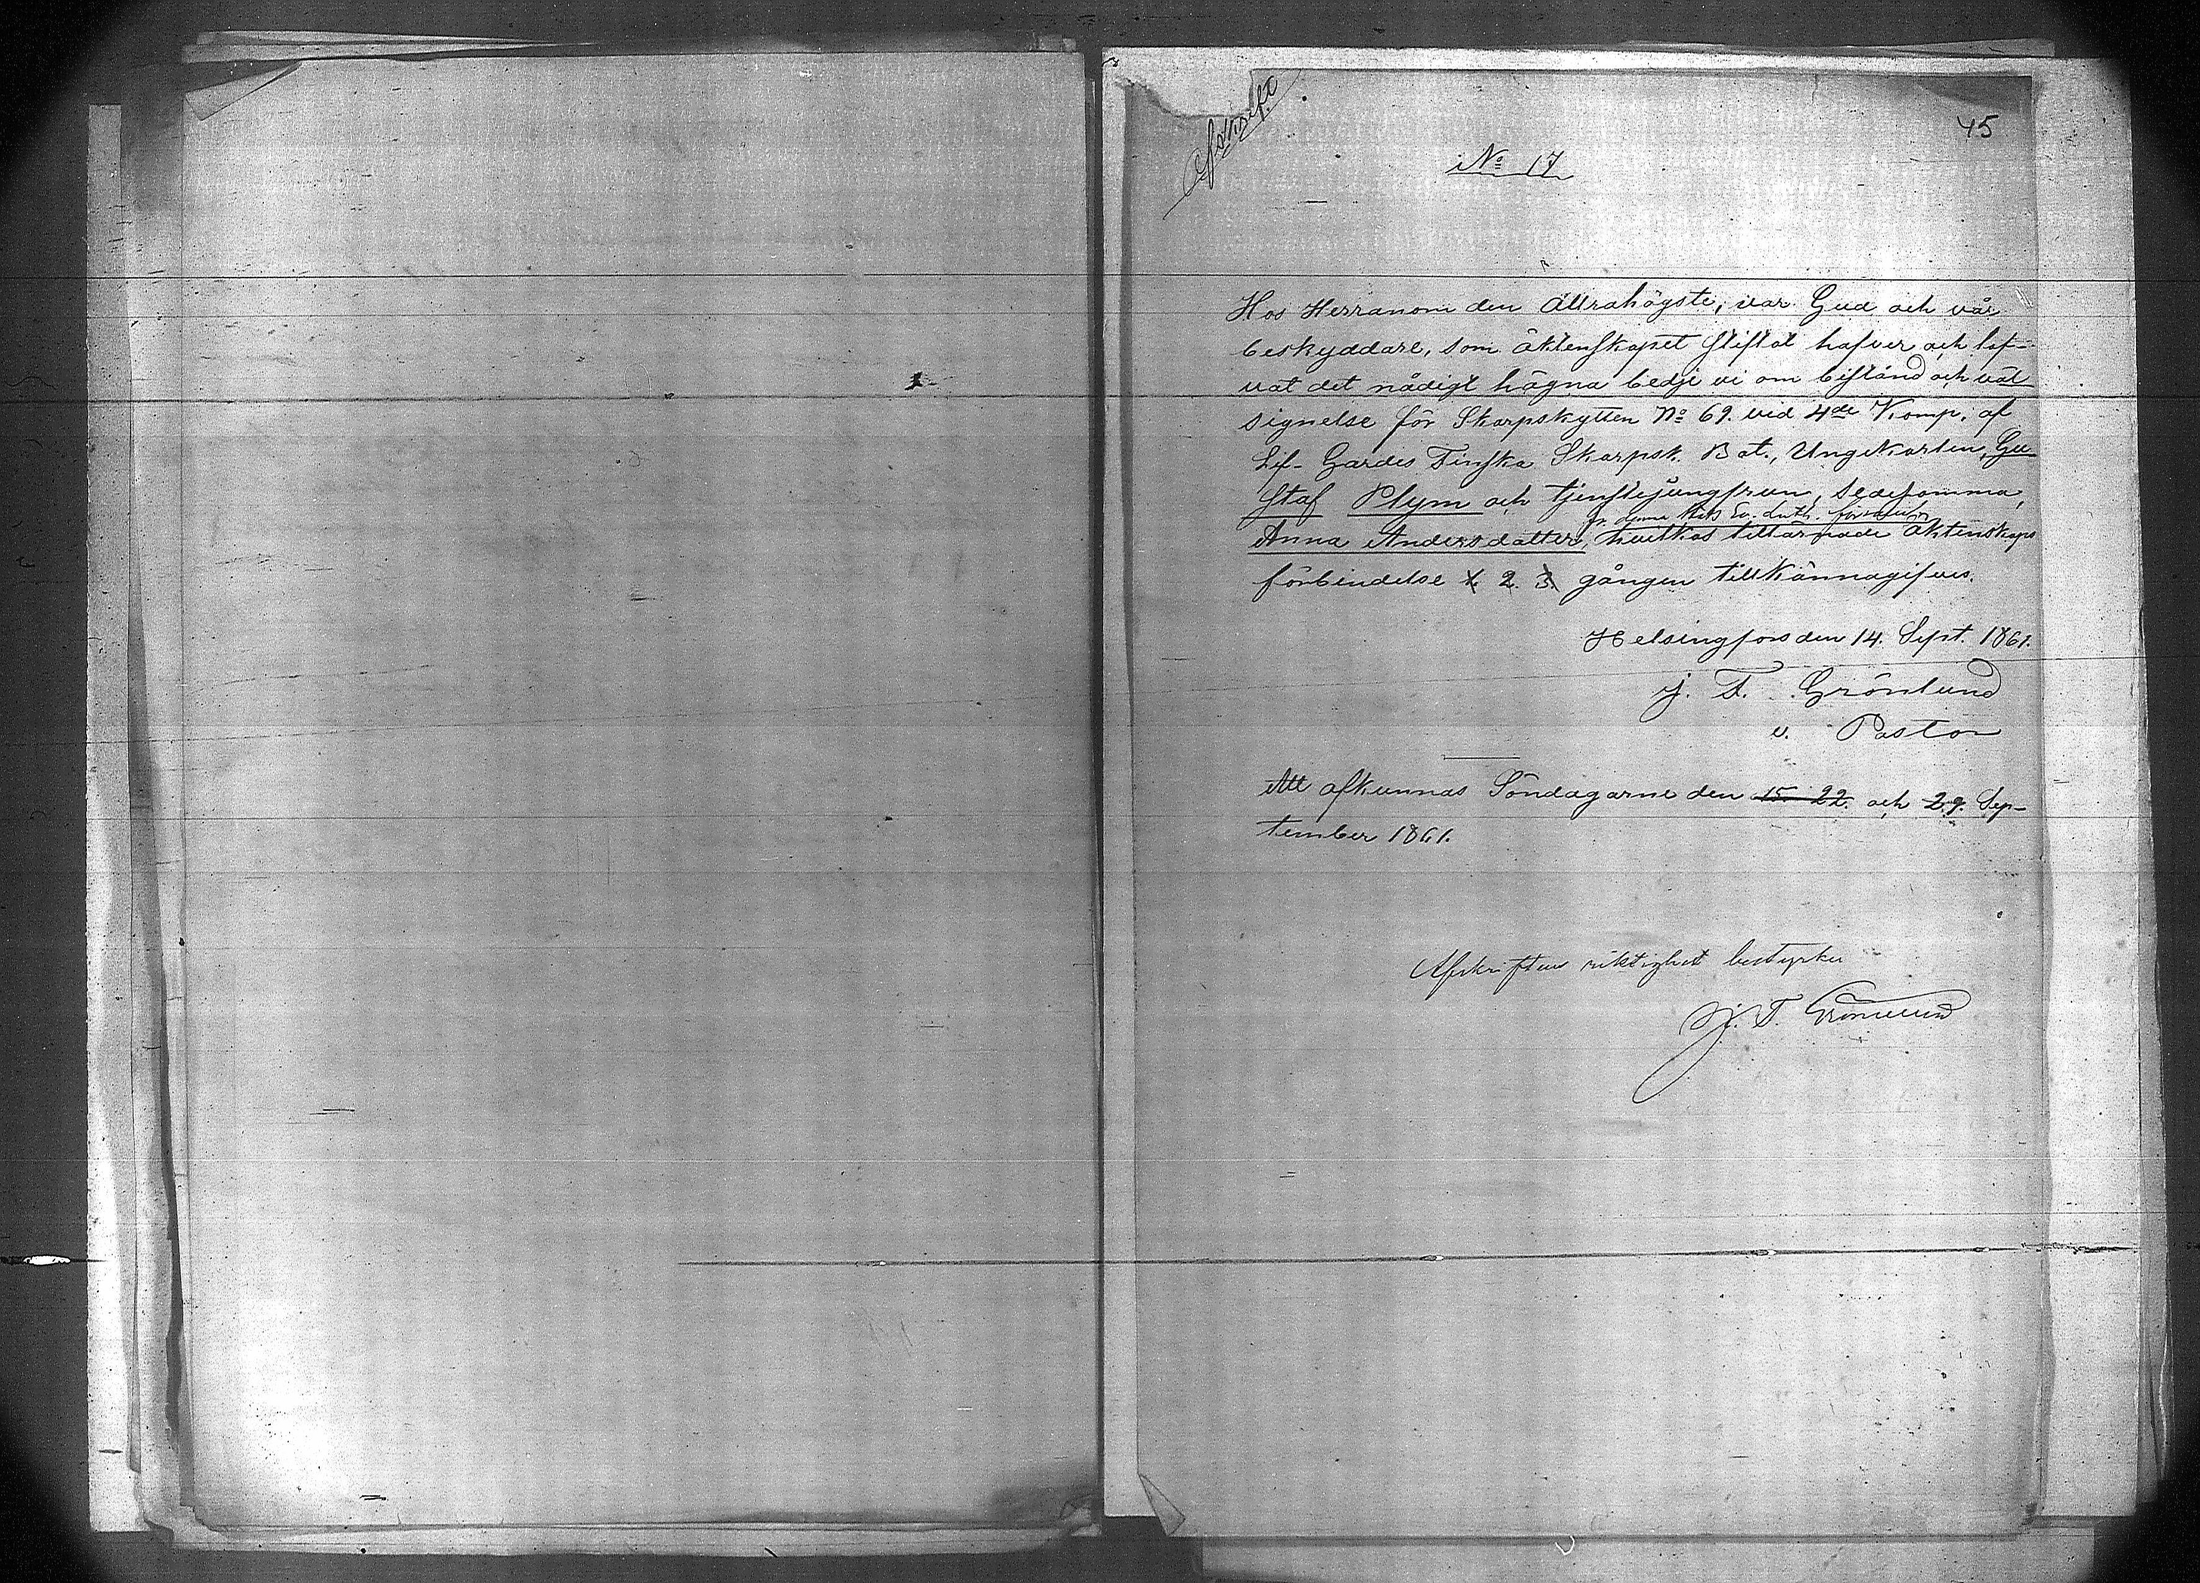 Afskrift
45
No 17
Hos Herranom den Allrahögste, vår Gud och vår
beskyddare, som äktenskapet stiftat hafver och lof-
vat det nådigt hägna bedje vi om bistånd och väl
signelse för Skarpskytten No 69. vid 4de Komp. af
Lif-Gardes Finska Skarpsk. Bat., Ungekarlen, Gu
staf Plym och tjenstejungfrun, sedesamma,
fr. denna Ev. Luth. församln
Anna Andersdatter, hvilkas tillärnade äktenskaps
förbindelse 1. 2. 3. gången tillkännagifves.
Helsingfors den 14. Sept. 1861.
J. F. Grönlund
v. Pastor
Att afkunnas Söndagarne den 15. 22. och 29. Sep-
tember 1861.
Afskriftens riktighet bestyrker
J. F. Grönlund